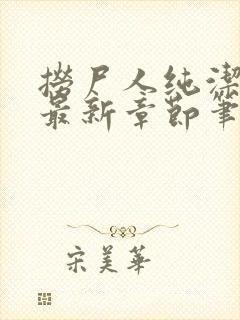 撈尸人純潔
最新章節筆
宋美華